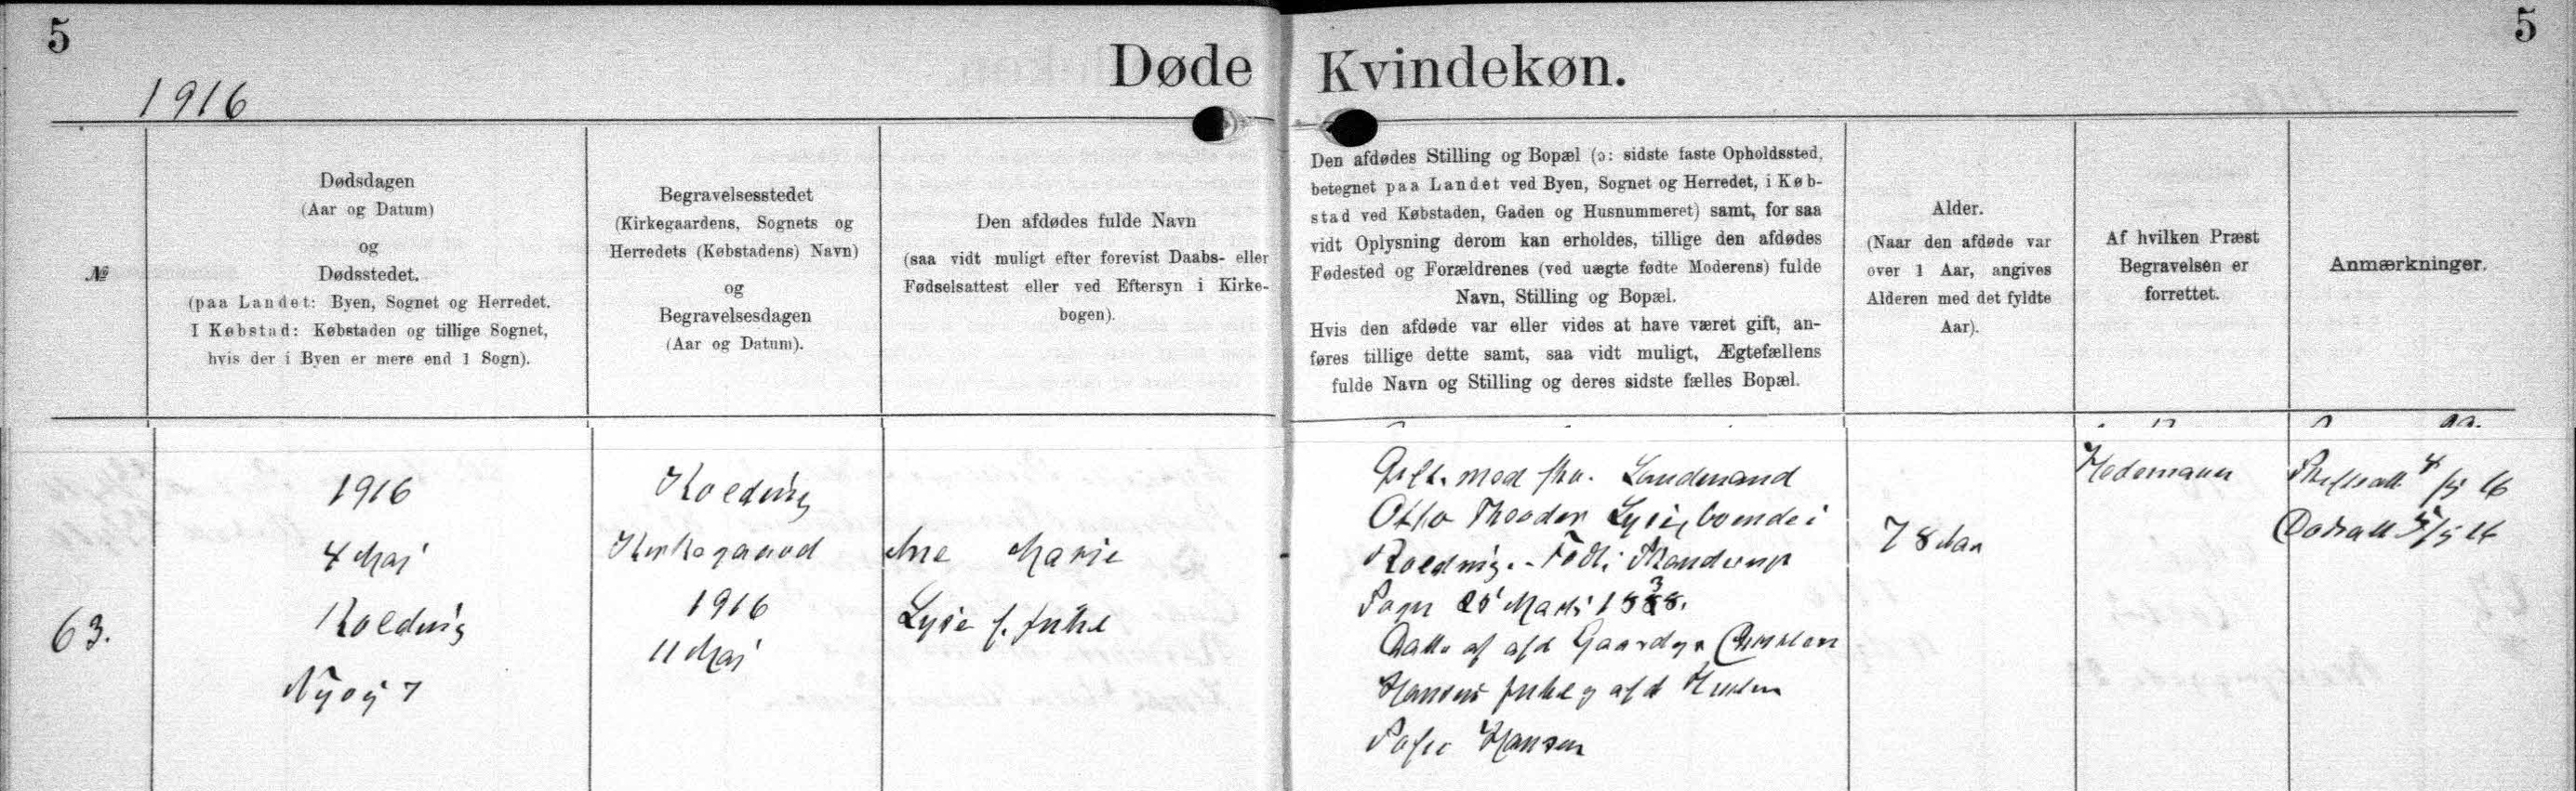 5
5
1916
Døde Kvindekøn.
№
Dødsdagen
(Aar og Datum)
og
Dødsstedet.
(paa Landet: Byen, Sognet og Herredet.
I Købstad: Købstaden og tillige Sognet,
hvis der i Byen er mere end 1 Sogn).
Begravelsesstedet
(Kirkegaardens, Sognets og
Herredets (Købstadens) Navn)
og
Begravelsesdagen
(Aar og Datum).
Den afdødes fulde Navn
(saa vidt muligt efter forevist Daabs- eller
Fødselsattest eller ved Eftersyn i Kirke-
bogen).
Den afdødes Stilling og Bopæl (ɔ: sidste faste Opholdssted,
betegnet paa Landet ved Byen, Sognet og Herredet, i Køb-
stad ved Købstaden, Gaden og Husnummeret) samt, for saa
vidt Oplysning derom kan erholdes, tillige den afdødes
Fødested og Forældrenes (ved uægte fødte Moderens) fulde
Navn, Stilling og Bopæl.
Hvis den afdøde var eller vides at have været gift, an-
føres tillige dette samt, saa vidt muligt, Ægtefællens
fulde Navn og Stilling og deres sidste fælles Bopæl.
Alder.
(Naar den afdøde var
over 1 Aar, angives
Alderen med det fyldte
Aar).
Af hvilken Præst
Begravelsen er
forrettet.
Anmærkninger.
63.
1916
4 Maj
Kolding
Nyvej 7
Kolding
Kirkegaard
1916
11 Maj
Ane Marie
Lyse f. Juhl
Gift med fhv. Landmand
Otto Theodor Lyse, boende i
Kolding. - Født i Skanderup
Sogn 25 Marts 1838.
Datter af afd Gaardejer Christen
Hansen Juhl og afd Hustru
Sofie Hansen
78 Aar
Hedemann
Skifteatt 4/5 16
Dødsatt 5/5 16